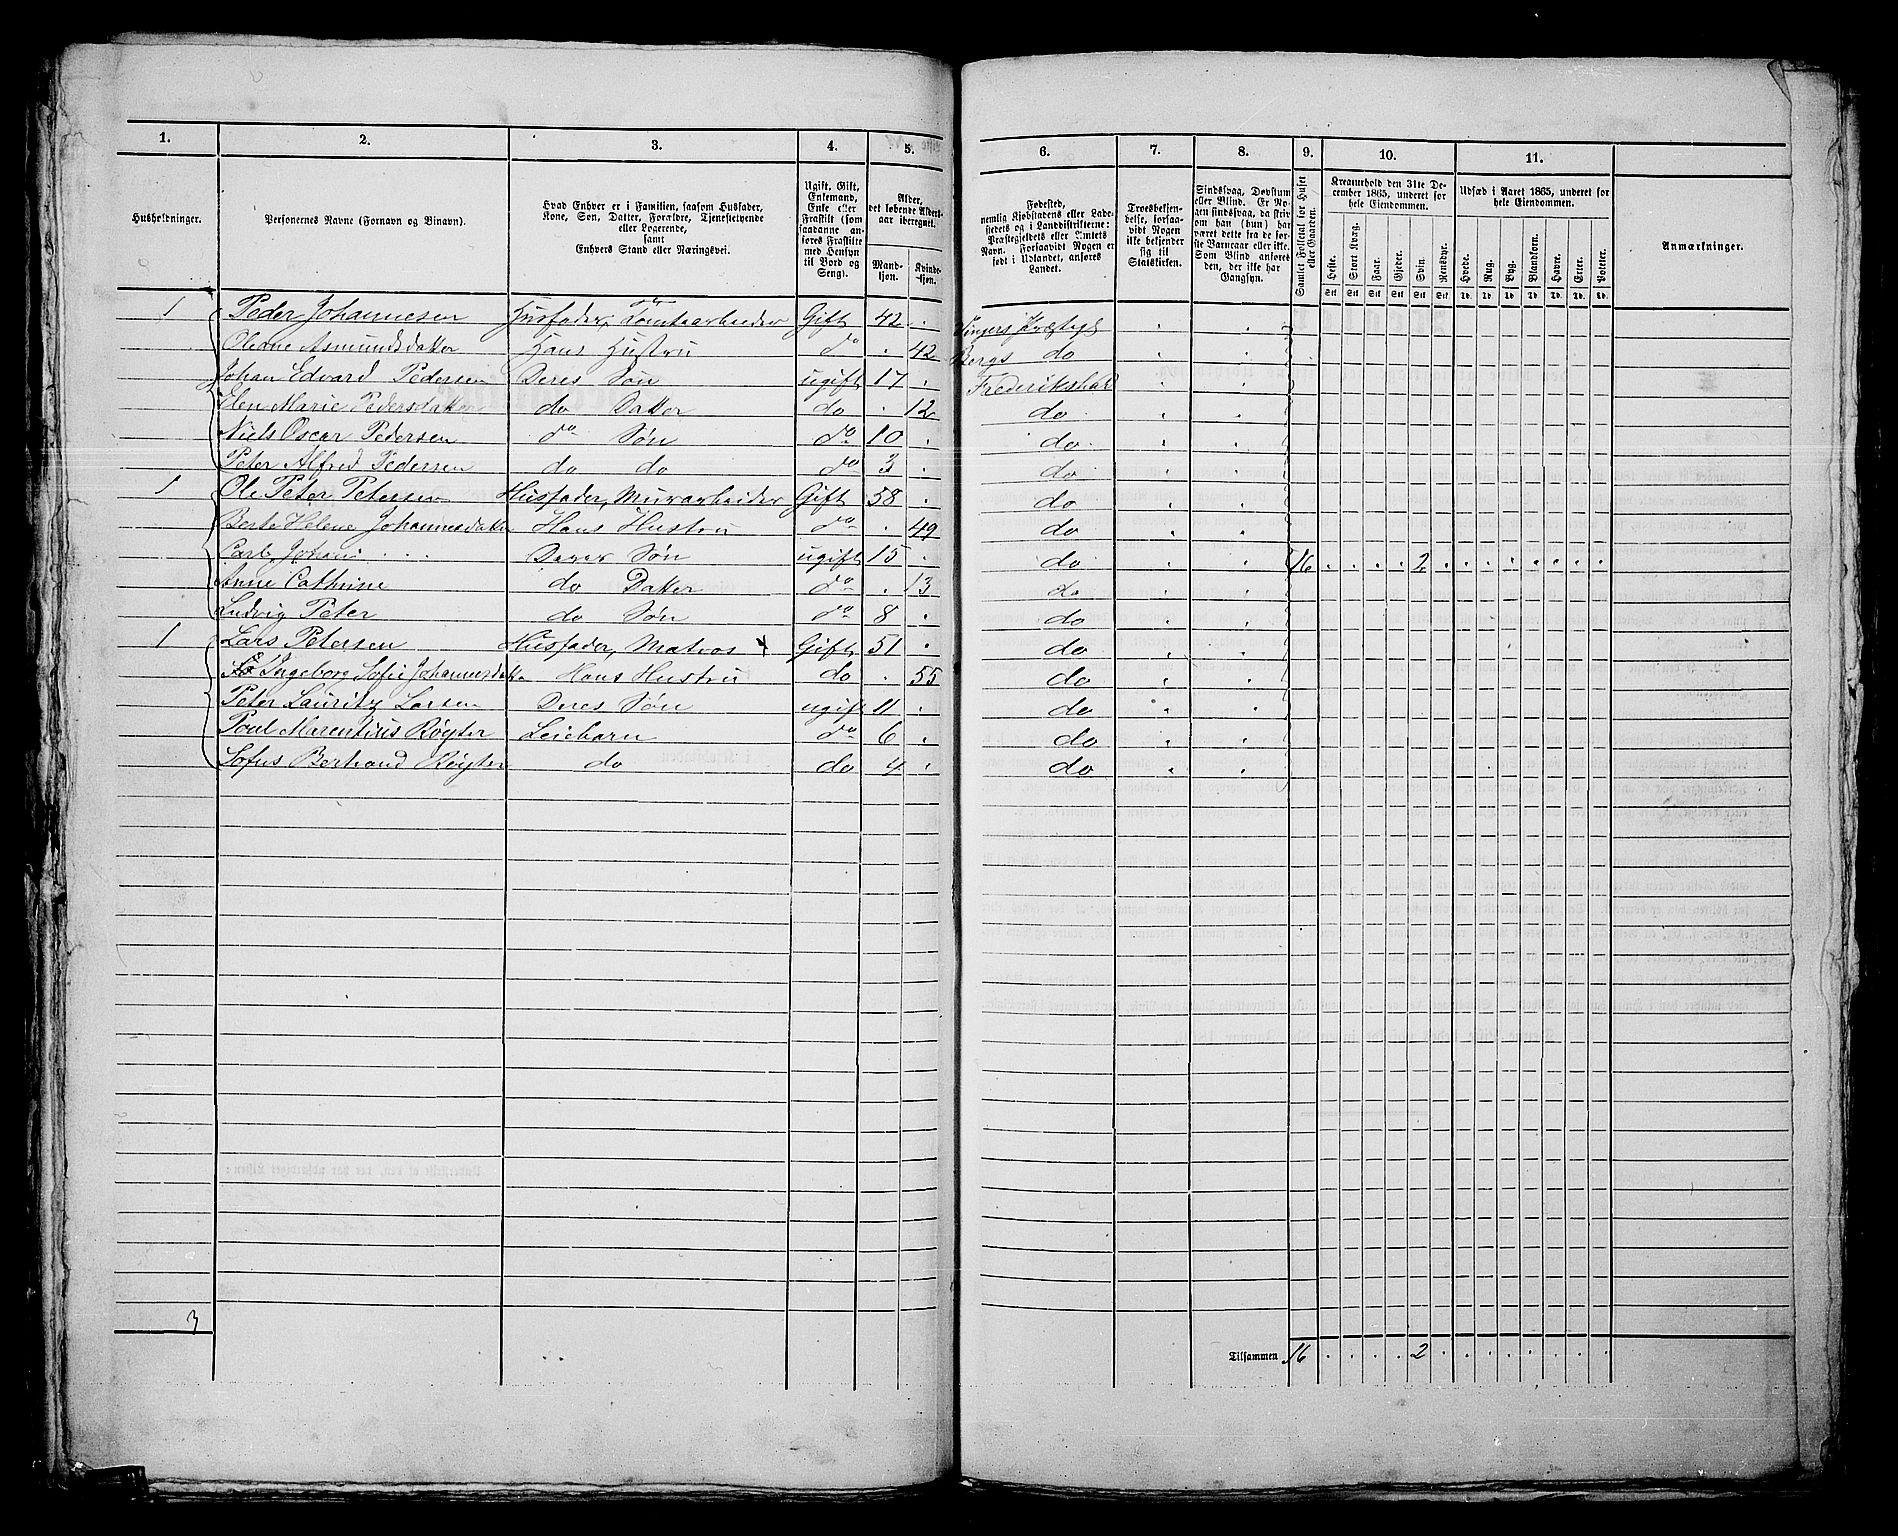 1. 2. 3. 4. 5. 6. 7. 8. 9. 10. 11.
Husholdninger.
Personernes Navne (Fornavn og Binavn).
Hvad Enhver er i Familien, saasom Husfader, Kone, Søn, Datter, Forældre, Tjenestetyende eller Logerende, samt Enhvers Stand eller Næringsvei.
Ugift, Gift, Enkemand, Enke eller Fraskilt (som saadanne anføres Fraskilte med Hensyn til Bord og Seng).
Alder, det løbende Aldersaar iberegnet.
Mandkjøn. Kvindekjøn.
Fødested, nemlig Kjøbstadens eller Ladestedets og i Landdistrikterne: Præstegjeldets eller Amtets Navn. Forsaavidt Nogen er født i Udlandet, anføres Landet.
Troesbekjendelse, forsaavidt Nogen ikke bekjender sig til Statskirken.
Sindssvag, Døvstum eller Blind. Er Nogen sindssvag, da skrives om han (hun) har været dette fra de første Barneaar eller ikke. Som Blind anføres den, der ikke har Gangsyn.
Samlet Folketal for Huset eller Gaarden.
Kreaturhold den 31te December 1865, underet for hele Eiendommen.
Heste. Stort Kvæg. Faar. Gjeder. Svin. Rensdyr.
Udsæd i Aaret 1865, underet for hele Eiendommen.
Hvede. Rug. Byg. Blandkorn. Havre. Erter. Poteter.
Anmærkninger.
Stk Stk Stk Stk Stk Stk Td. Td. Td Td Td. Td. Td.
1 Peder Johannesen Husfader, Tomtaarbeider Gift 42 . Præstgjd
Oleane Asmundsdatter Hans Hustru do . 42 Bergs do
Johan Edvard Pedersen Deres Søn ugift 17 . Frederikshald
Elen Marie Pedersdatter do Datter do . 12 do
Niels Oscar Pedersen do Søn do 10 . do
Peter Alfred Pedersen do do do 3 . do
1 Ole Peter Petersen Husfader, Murarbeider Gift 58 . do
Berte Helene Johannesdatter Hans Hustru do . 49 do
Carl Johan . . . Deres Søn ugift 15 . do 16 . . . . 2 . . . . . . . .
Anne Cathrine do Datter do . 13 do
Ludvig Peter do Søn do 8 . do
1 Lars Petersen Husfader, Matros Gift 51 . do
Ingeborg Sofie Johannesdatter Hans Hustru do . 55 do
Peter Lauritz Larsen Deres Søn ugift 11 . do
Poul Marentius Røyter Leiebarn do 6 . do
Sofus Bertrand Røyter do do 4 . do
3
Tilsammen 16 . . . . 2 . . . . . . . .